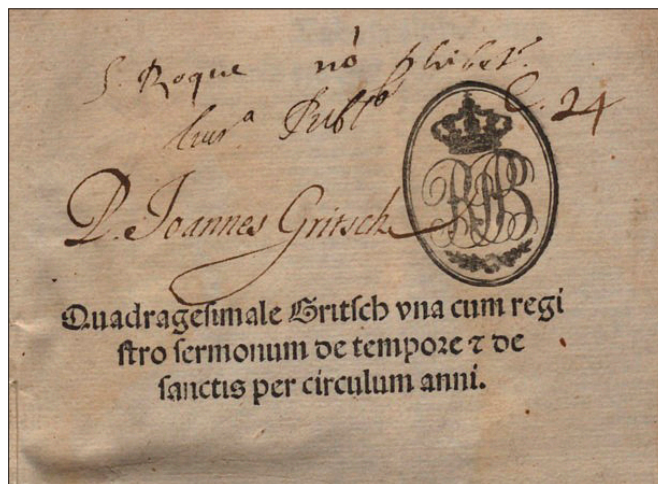 S. Roque nõ phibet.
C. 24
D. Joannes Gritsch
Quadrageſimale Gritſch vna cum regi
ſtro ſermonum de tempore ⁊ de
ſanctis per circulum anni.